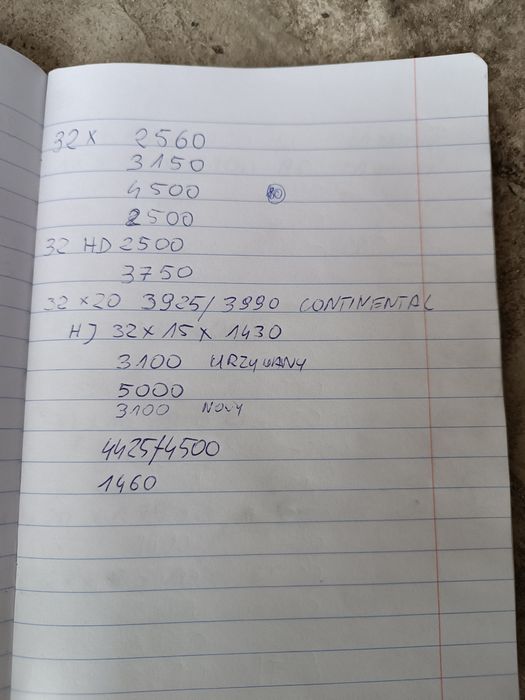 32 x 2560
3150
4500
2500
32 HD 2500
3750
32 x 20 3925/3990 CONTINENTAL
HJ 32 x 15 x 1430
3100 URZYWANY
5000
3100 NOWY
4425/4500
1460